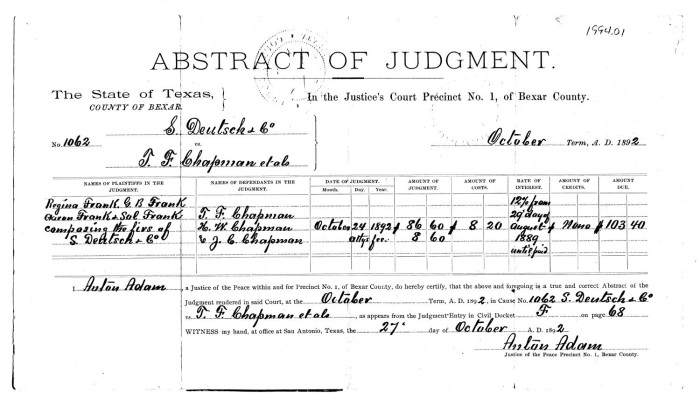 1994.01
ABSTRACT OF JUDGMENT.
The State of Texas,
COUNTY OF BEXAR.
In the Justice's Court Precinct No. 1, of Bexar County.
No. 1062
S. Deutsch & Co
vs.
T. F. Chapman et als
October Term, A. D. 1892
NAMES OF PLAINTIFFS IN THE JUDGMENT.
NAMES OF DEFENDANTS IN THE JUDGMENT.
DATE OF JUDGMENT.
Month. Day. Year.
AMOUNT OF JUDGMENT.
AMOUNT OF COSTS.
RATE OF INTEREST.
AMOUNT OF CREDITS.
AMOUNT DUE.
Regina Frank. G. B. Frank
Frank & Sol Frank
composing the firs of
S. Deutsch & Co
T. F. Chapman
H. W. Chapman
& J. C. Chapman
October 24 1892
attys fee.
$ 86 60
8 60
$ 8 20
12% from
29 day of
August
1889
until paid
$ None
$ 103 40
I, Anton Adam, a Justice of the Peace within and for Precinct No. 1, of Bexar County, do hereby certify, that the above and foregoing is a true and correct Abstract of the
Judgment rendered in said Court, at the October Term, A. D. 1892, in Cause No. 1062 S. Deutsch & Co
vs. T. F. Chapman et als, as appears from the Judgment Entry in Civil Docket F on page 68
WITNESS my hand, at office at San Antonio, Texas, the 27 day of October A. D. 1892
Anton Adam
Justice of the Peace Precinct No. 1, Bexar County.